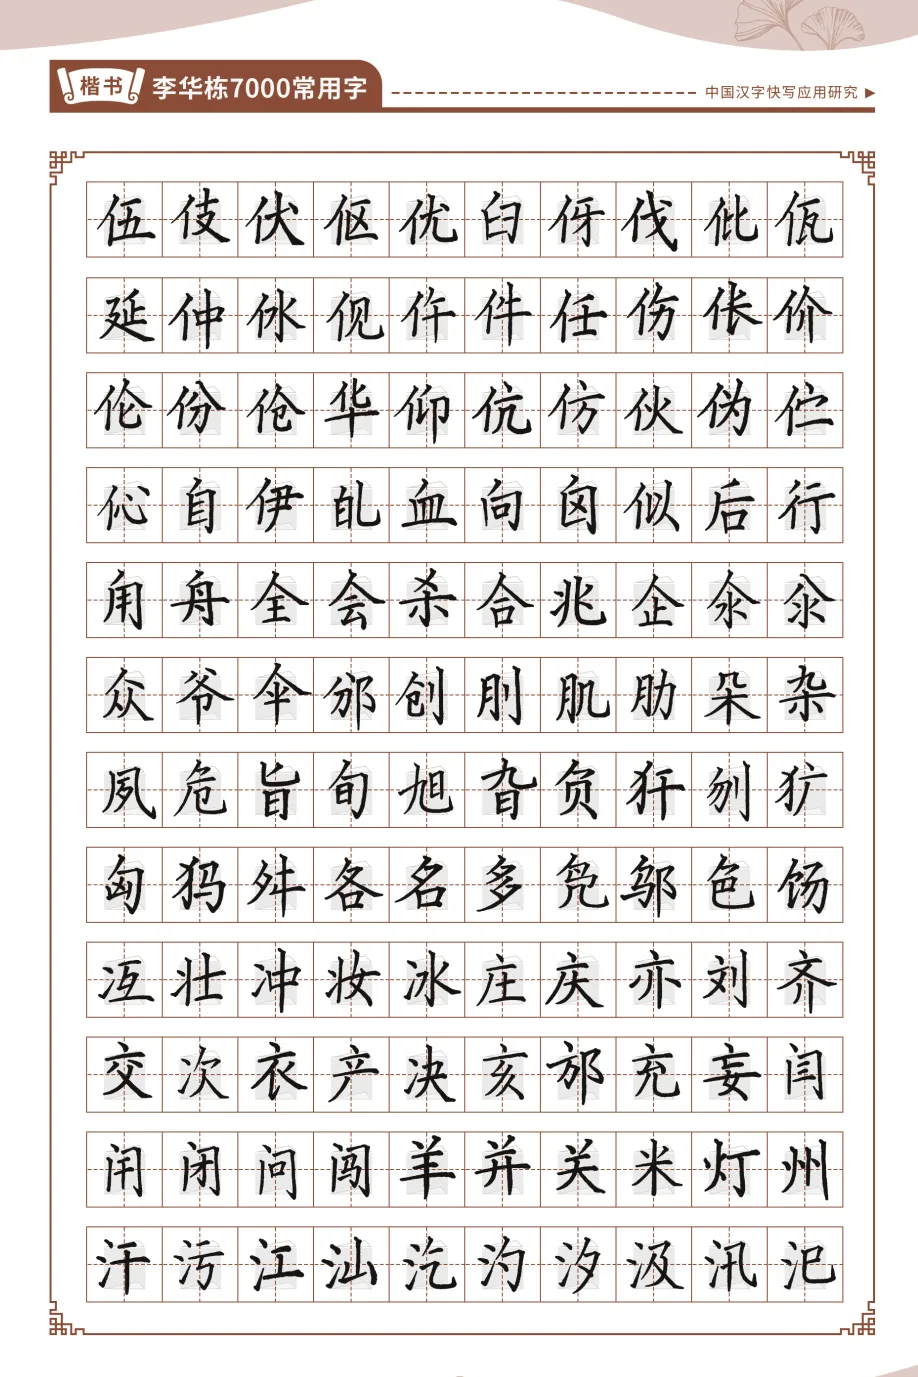 楷书 李华栋7000常用字
中国汉字快写应用研究
伍伎伏伛优臼伢伐仳佤
延仲伣仵件任伤伥价
伦份伧华仰伉仿伙伪伫
伈自伊癿血向囟似后行
甪舟全会杀合兆企汆氽
众爷伞邠创刖肌肋朵杂
夙危旨旬旭旮负犴刎犷
匈犸舛各名多凫邬色饧
冱壮冲妆冰庄庆亦刘齐
交次衣产决亥邡充妄闫
闬闭问闯羊并关米灯州
汗污江汕汔汋汐汲汛汜